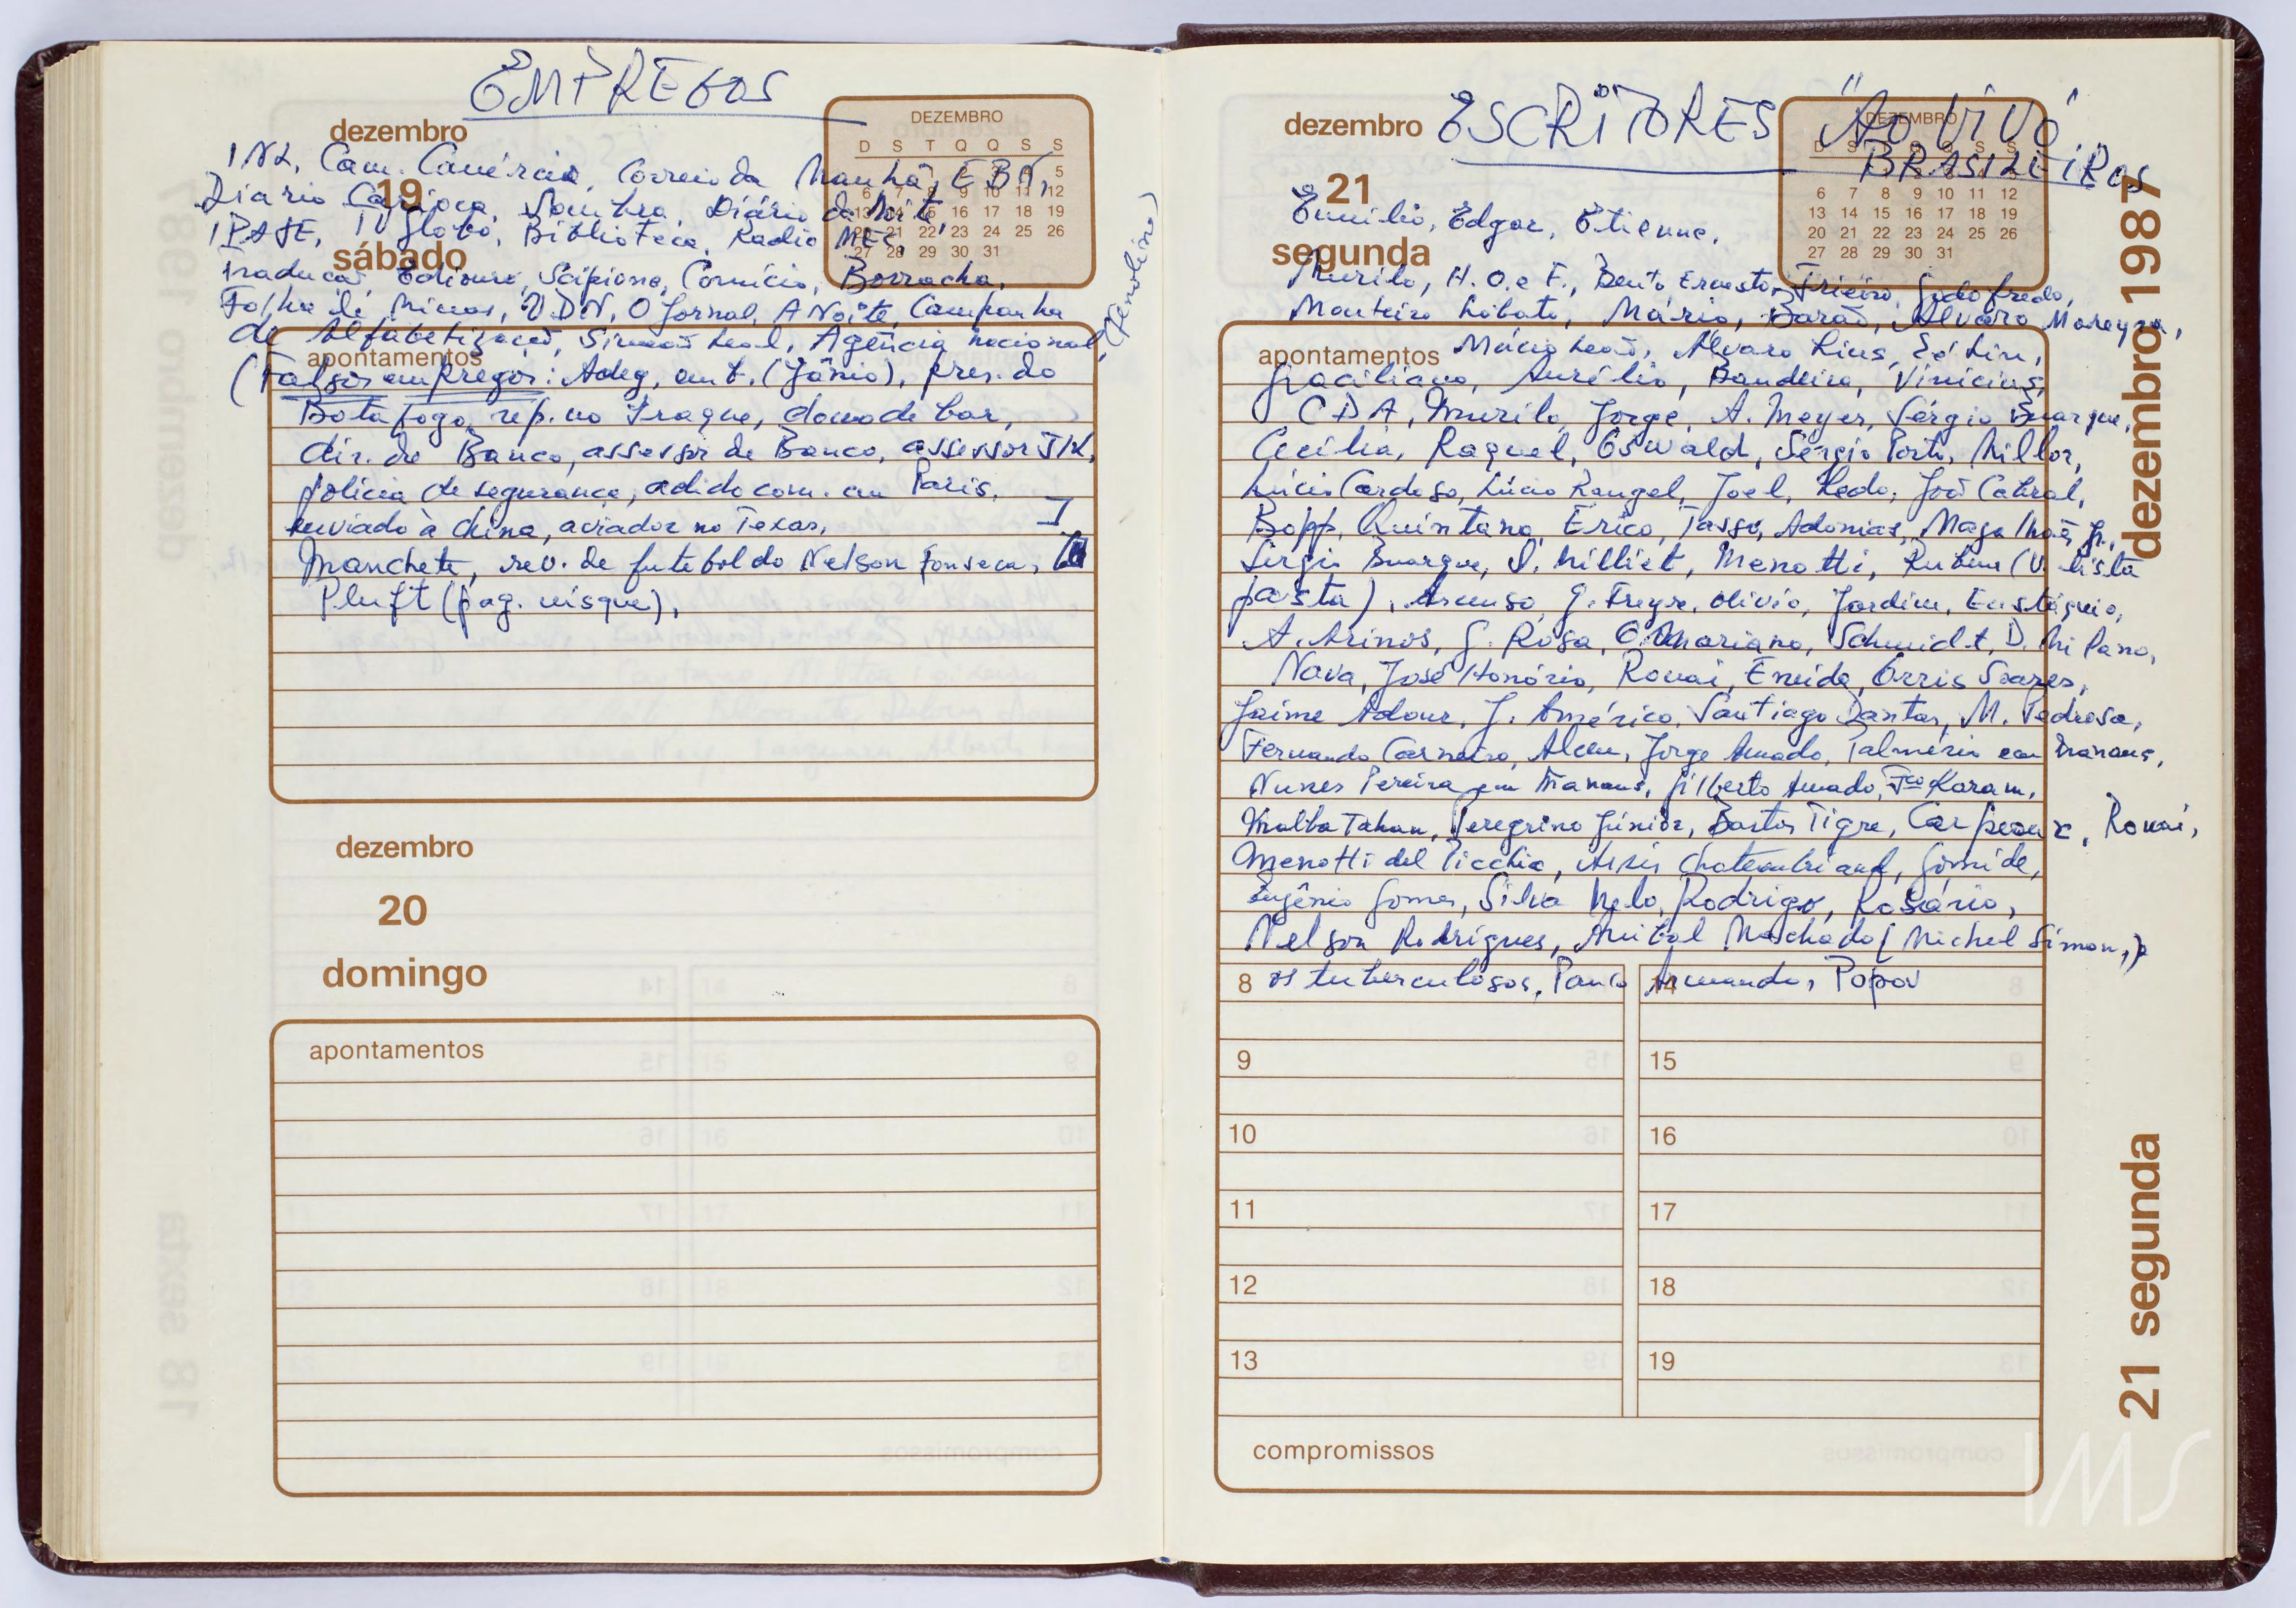 EMPREGOS
dezembro
19
sábado
DEZEMBRO
D S T Q Q S S
5
6 7 8 9 10 11 12
13 14 15 16 17 18 19
20 21 22 23 24 25 26
27 28 29 30 31
INL, Cam. Comércio, Correio da Manhã, EBA,
Diario Carioca, Sombra, Diário da Noite,
IPASE, TV Globo, Biblioteca, Radio MEC,
Traducão, Scipione, Comício, Borracha,
Folha de Minas, UDN, O Jornal, A Noite, Campanha
de Alfabetização, Simeão Leal, Agência nacional,
apontamentos
(Falsos empregos: Adeg, emb. (Jânio), pres. do
Botafogo, rep. no Iraque, dono de bar,
dir. de Banco, assessor de Banco, assessor JK,
polícia de segurança, adido com. em Paris,
enviado à China, aviador no Texas,
Manchete, rev. de futebol do Nelson Fonseca,
Pluft (pag. uísque),
dezembro
20
domingo
apontamentos
dezembro
21
segunda
ESCRITORES "AO VIVO"
BRASILEIROS
DEZEMBRO
6 7 8 9 10 11 12
13 14 15 16 17 18 19
20 21 22 23 24 25 26
27 28 29 30 31
Emílio, Edgar, Etienne,
Murilo, H. O. e F., Bento Ernesto, Frieiro, Godofredo,
Monteiro Lobato, Mário, Barão, Alvaro Moreyra,
apontamentos
Múcio Leão, Alvaro Lins, Zé Lin,
Graciliano, Aurélio, Bandeira, Vinicius,
CDA, Murilo, Jorge, A. Meyer, Sérgio Buarque,
Cecília, Raquel, Oswald, Sérgio Porto, Millor,
Lúcio Cardoso, Lúcio Rangel, Joel, Ledo, João Cabral,
Bopp, Quintana, Erico, Tasso, Adonias, Magalhães Jr.,
Sérgio Buarque, S. Milliet, Menotti, Rubem (V. lista
pasta), Ascenso, G. Freyre, Olívio, Jardim, Eustáquio,
A. Arinos, G. Rosa, O. Mariano, Schmidt, D. Mi Pano,
Nava, José Honório, Ronai, Eneida, Orris Soares,
Jaime Adour, J. Américo, Santiago Dantas, M. Pedrosa,
Fernando Carneiro, Alceu, Jorge Amado, Palmério em Manaus,
Nunes Pereira em Manaus, Gilberto Amado, Fco Karam,
Malba Tahan, Peregrino Júnior, Bastos Tigre, Carpeaux, Ronai,
Menotti del Picchia, Assis Chateaubriand, Gomide,
Eugênio Gomes, Silva Melo, Rodrigo, Rosário,
Nelson Rodrigues, Anibal Machado (Michel Simon,)
os tuberculosos, Paulo Armando, Popov
8 14
9 15
10 16
11 17
12 18
13 19
compromissos
dezembro 1987
21 segunda
IMS